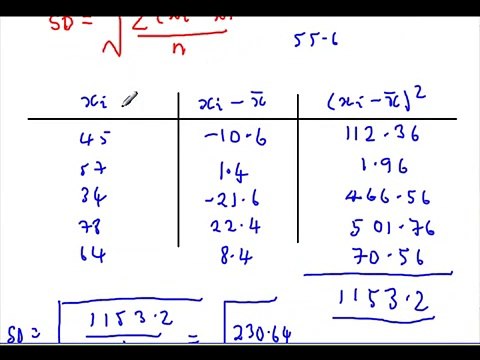 SD = √ Σ(xi - x̄)
n
55.6
xi xi - x̄ (xi - x̄)²
45 -10.6 112.36
57 1.4 1.96
34 -21.6 466.56
78 22.4 501.76
64 8.4 70.56
1153.2
SD = √ 1153.2 = √ 230.64